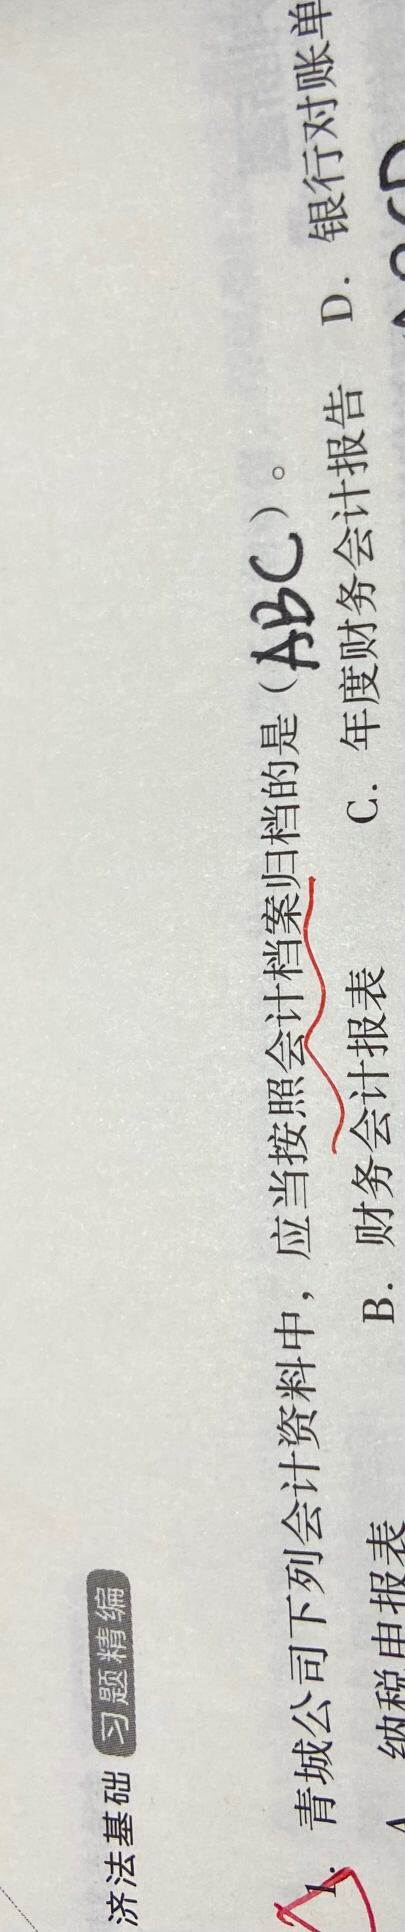 济法基础 习题精编
1. 青城公司下列会计资料中，应当按照会计档案归档的是（ABC）。
A. 纳税申报表 B. 财务会计报表 C. 年度财务会计报告 D. 银行对账单